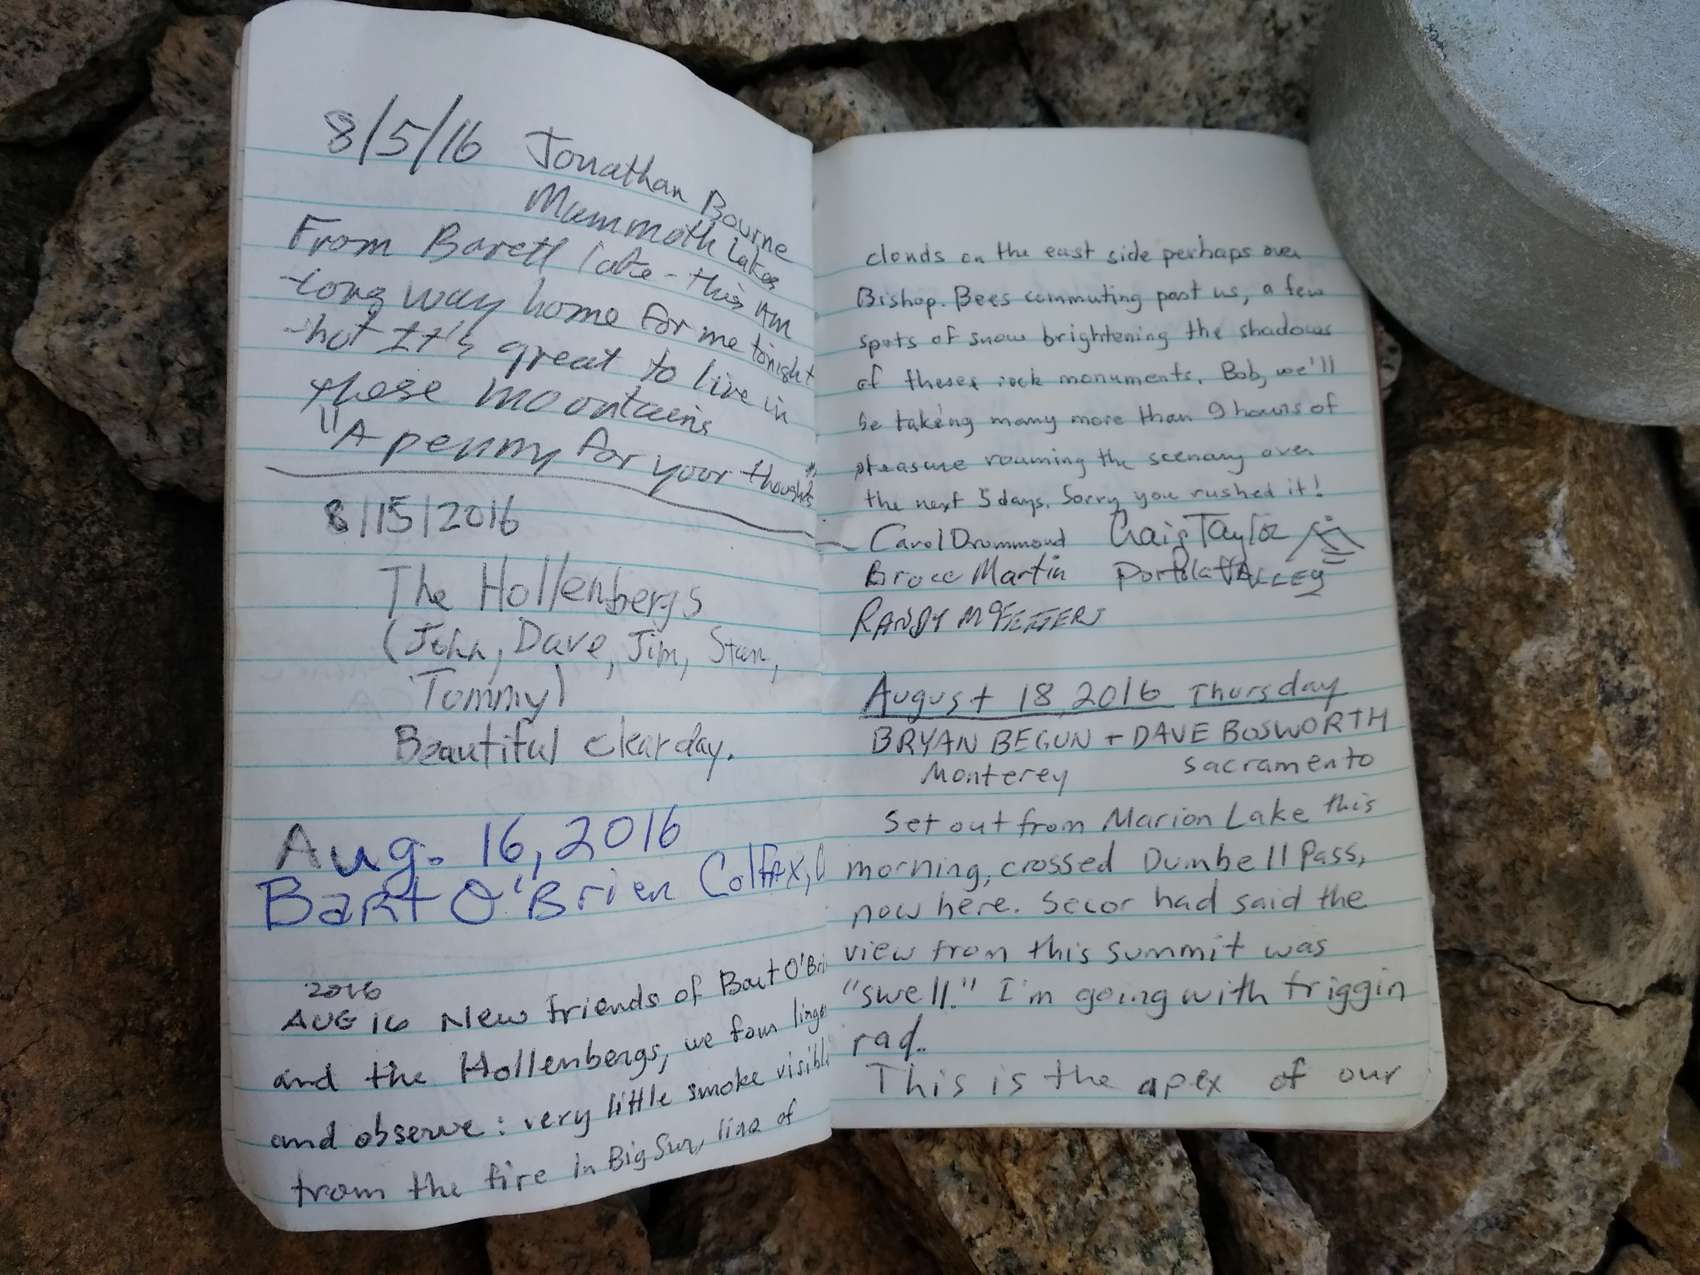 8/5/16 Jonathan Bourne
Mammoth Lakes
From Barett lake - this AM
long way home for me tonight
-but It's great to live in
these mountains
"A penny for your thoughts"
8/15/2016
The Hollenbergs
(John, Dave, Jim, Stan,
Tommy)
Beautiful clear day.
Aug. 16, 2016
Bart O'Brien Colfax,
2016
AUG 16 New friends of Bart O'Bri
and the Hollenbergs, we four linge
and observe: very little smoke visible
from the fire in Big Sur, line of
clouds on the east side perhaps over
Bishop. Bees commuting past us, a few
spots of snow brightening the shadows
of these rock monuments. Bob, we'll
be taking many more than 9 hours of
pleasure roaming the scenary over
the next 5 days. Sorry you rushed it!
Carol Drummond Craig Taylor
Bruce Martin Portola VALLEY
RANDY McFEETERS
August 18, 2016 Thursday
BRYAN BEGUN + DAVE BOSWORTH
Monterey Sacramento
Set out from Marion Lake this
morning, crossed Dumbell Pass,
now here. Secor had said the
view from this summit was
"swell." I'm going with friggin
rad.
This is the apex of our